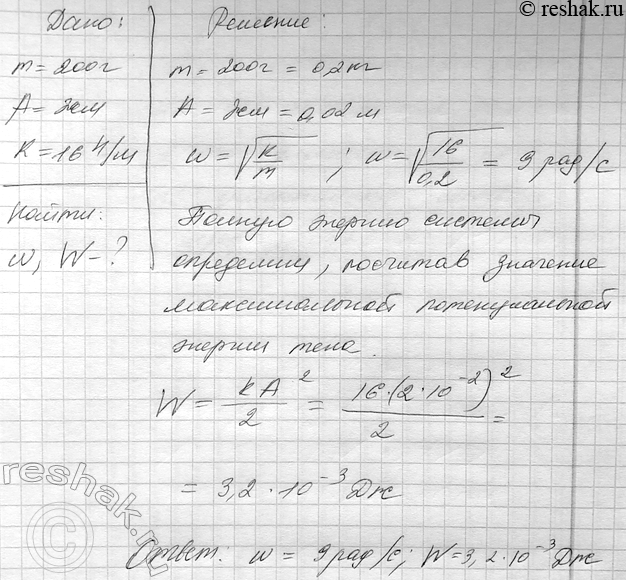 © reshak.ru
Дано:
m = 200г
A = 2см
K = 16 Н/м
Найти:
ω, W - ?
Решение:
m = 200г = 0,2 кг
A = 2см = 0,02 м
ω = √(K/m) ; ω = √(16/0,2) = 9 рад/с
Полную энергию системы
определим, посчитав значение
максимальной потенциальной
энергии тела.
W = kA²/2 = 16·(2·10⁻²)²/2 =
= 3,2 · 10⁻³ Дж
Ответ: ω = 9 рад/с; W = 3,2·10⁻³ Дж
reshak.ru